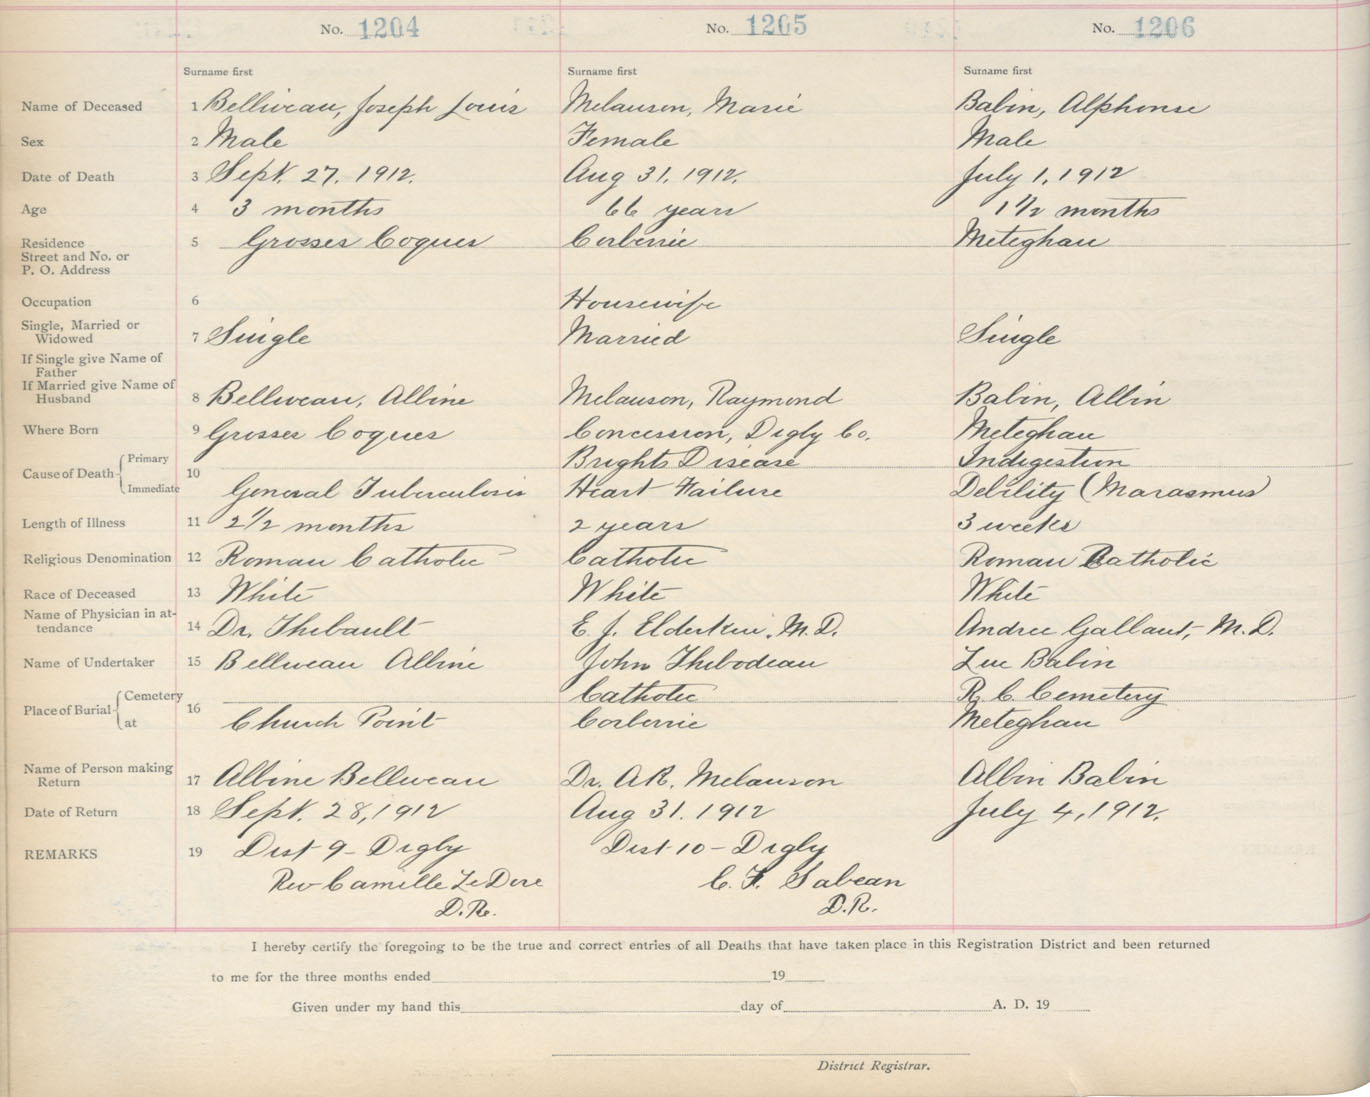 No. 1204 No. 1205 No. 1206
Surname first Surname first Surname first
Name of Deceased 1 Belliveau, Joseph Louis Melanson, Marie Babin, Alphonse
Sex 2 Male Female Male
Date of Death 3 Sept. 27. 1912. Aug 31. 1912. July 1, 1912
Age 4 3 months 66 years 1 1/2 months
Residence
Street and No. or
P. O. Address 5 Grosses Coques Corberrie Meteghan
Occupation 6 Housewife
Single, Married or
Widowed 7 Single Married Single
If Single give Name of
Father
If Married give Name of
Husband 8 Belliveau, Albine Melanson, Raymond Babin, Albin
Where Born 9 Grosses Coques Concession, Digby Co. Meteghan
Cause of Death 10 Primary Brights Disease Indigestion
Immediate General Tuberculosis Heart Failure Debility (Marasmus)
Length of Illness 11 2 1/2 months 2 years 3 weeks
Religious Denomination 12 Roman Catholic Catholic Roman Catholic
Race of Deceased 13 White White White
Name of Physician in at-
tendance 14 Dr. Thibault E. J. Elderkin. M.D. Andree Gallant, M.D.
Name of Undertaker 15 Belliveau Albine John Thibodeau Luc Babin
Place of Burial 16 Cemetery Catholic R. C. Cemetery
at Church Point Corberrie Meteghan
Name of Person making
Return 17 Albine Belliveau Dr. A.R. Melanson Albin Babin
Date of Return 18 Sept. 28, 1912 Aug 31. 1912 July 4, 1912.
REMARKS 19 Dist 9 - Digby Dist 10 - Digby
Rev Camille LeDore C. F. Sabean
D.R. D.R.
I hereby certify the foregoing to be the true and correct entries of all Deaths that have taken place in this Registration District and been returned
to me for the three months ended 19
Given under my hand this day of A. D. 19
District Registrar.